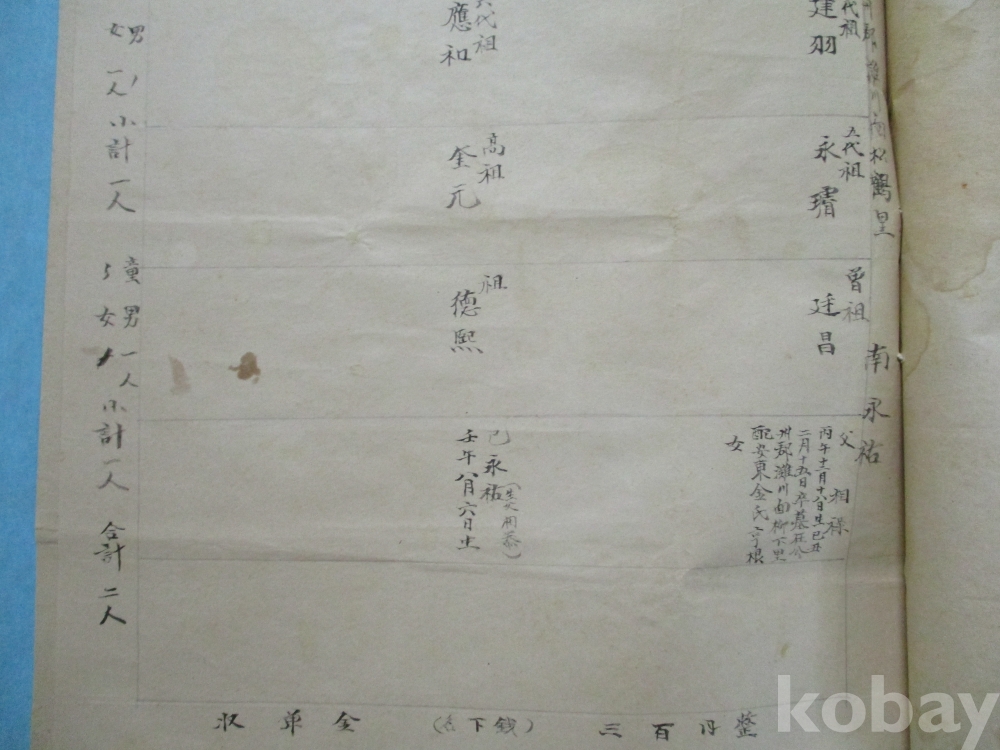 松鶴里 南永祐
代祖
建羽
五代祖
永璿
曾祖
廷昌
父 相
丙午十一月十六日生己丑
二月十五日卒墓在公
州郡灘川面柳下里
配安東金氏亨根
女
六代祖
應和
高祖
奎元
祖
德熙
己永祐(生父用泰)
壬午八月六日生
男 一人
女
小計 一人
童 男 一人
女
小計 一人
合計 二人
收單金 (名下錢) 三百円整
kobay